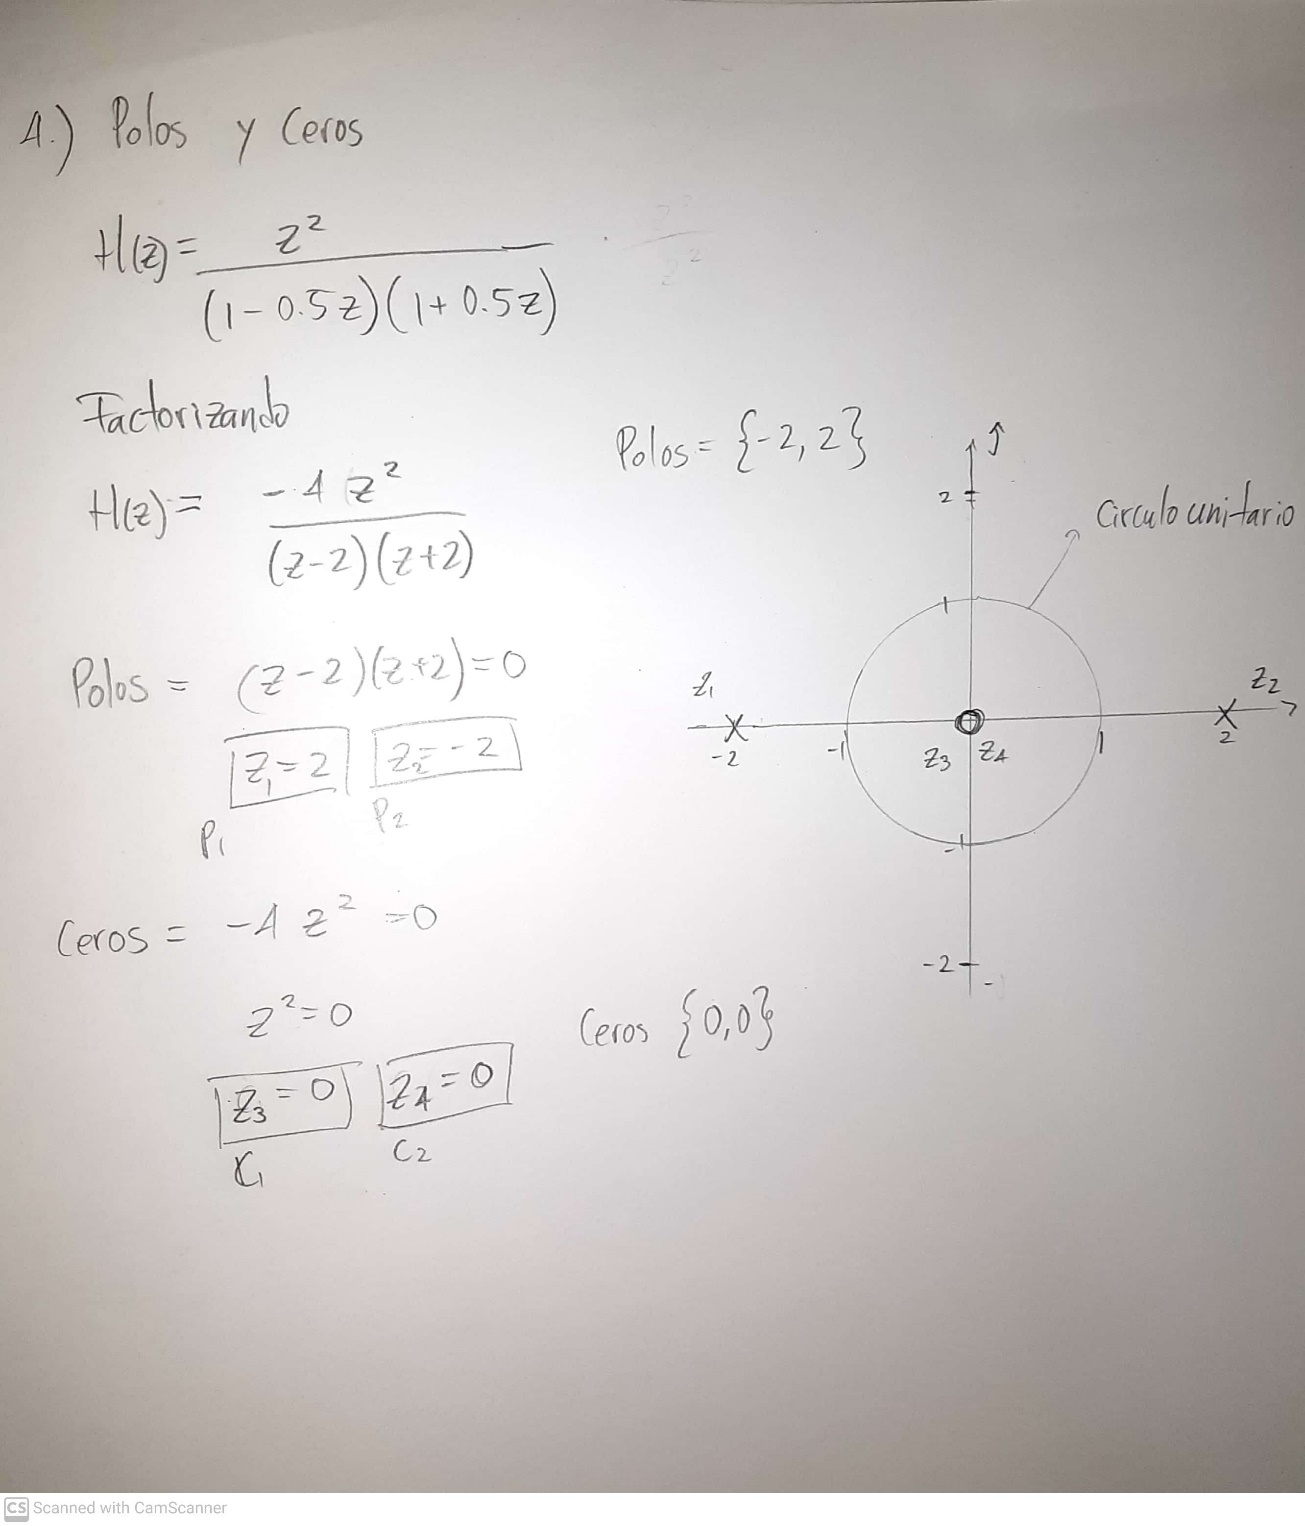 4.) Polos y Ceros
H(z) = z² / (1 - 0.5z)(1 + 0.5z)
Factorizando
H(z) = -4 z² / (z-2)(z+2)
Polos = (z-2)(z+2) = 0
Z₁ = 2   Z₂ = -2
P₁   P₂
Ceros = -4 z² = 0
z² = 0
Z₃ = 0   Z₄ = 0
C₁   C₂
Polos = {-2, 2}
j
2
Circulo unitario
1
Z₁   Z₂
-2   -1   1   2
Z₃ Z₄
-1
-2
-j
Ceros {0,0}
CS Scanned with CamScanner